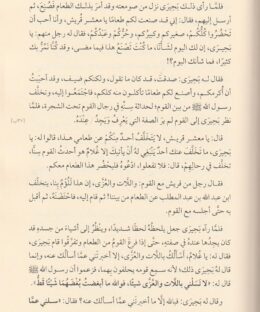 فلمَّا رأى ذلك بَحِيرَى نزل من صومعته وقد أمر بذلك الطعام فصُنِع، ثم
أرسل إليهم، فقال: إني قد صنعت لكم طعامًا يا معشر قُريش، وأنا أحب أن
تَحْضُرُوا كُلُّكُم، صغيركم وكبيركم، وحُرُّكُم وعَبْدُكُم، فقال له رجل منهم: يا
بَحِيرَى، إن لك اليوم لشأنًا، ما كُنتَ تَصْنَعُ هذا فيما مضى، وقد كُنَّا نَمُرُّ بك
كثيرًا، فما شأنُك اليوم؟!
فقال لـه بَحِيرَى: صدقتَ، قد كان ما تقول، ولكنكم ضيف، وقد أحببْتُ
أن أكرمكم، وأصنع لكم طعامًا تأكلون منه كلكم، فاجتمَعُوا إليه، وتخلَّف
رسول الله ﷺ من بين القوم؛ لحداثة سِنِّه في رحال القوم تحت الشجرة، فلمَّا
نظر بَحِيرَى إلى القوم لم يرَ الصفة التي يَعرِفُ ويَجِدُ عِندَهُ.
قال: يا معشر قريش، لا يتخلَّفُ أحدٌ منكم عن طعامي هذا، قالوا له: يا
بحيرى، ما تخلَّف عنك أحدٌ يَنْبَغِي لهُ أنْ يأتِيَكَ إلا غُلامٌ هو أحدثُ القومِ سِنًّا،
تخلَّفَ في رِحالِهِمْ، قال: فلا تفعلوا، ادْعُوهُ؛ فليَحْضُرْ هذا الطعام معكم.
فقال رجل من قريش مع القوم: واللَّات والعُزَّى، إن هذا لَلُؤْمٌ بِنَا، يتخلَّف
ابن عبد الله بن عبد المطلب عن الطعام من بيننا! ثم قام إليه، فاحْتَضَنَهُ، ثم أقبل
به حتَّى أجلسه مع القوم.
فلمَّا رآه بَحِيرَى جعل يلحظُهُ لحظًا شديدًا، وينظُرُ إلى أشياءَ من جسده قد
كان يجِدُها عِندهُ في صِفتِه، حتَّى إذا فرغَ القومُ من الطعام وتفرَّقُوا قام بَحِيرَى،
فقال له: يا غُلام، أَسْأَلُكَ باللَّات والعُزَّى، إلا أخبرتني عمَّا أسألك عنه، وإنما
قال له بَحِيرَى ذلك؛ لأنه سمع قومه يحلفون بهما، فزعموا أن رسول الله ﷺ
قال له: «لا تَسْأَلْني باللَّات والعُزَّى شيئًا، فوالله ما أبغضتُ بُغْضَهُمَا شيئًا قَطُّ»،
وقال له بَحِيرَى: فبالله إلَّا ما أخبرتَني عمَّا أسألك عنه؟ فقال: «سلني عمَّا